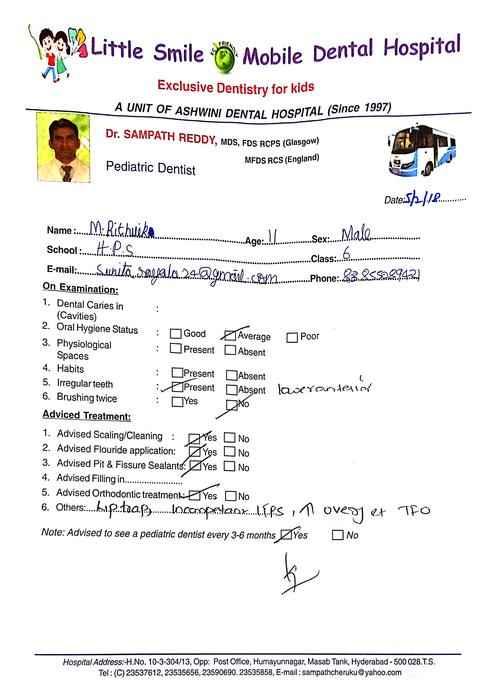 Little Smile Mobile Dental Hospital
Exclusive Dentistry for kids
A UNIT OF ASHWINI DENTAL HOSPITAL (Since 1997)
Dr. SAMPATH REDDY, MDS, FDS RCPS (Glasgow)
MFDS RCS (England)
Pediatric Dentist
Date: 5/2/18
Name: M. Rithvika Age: 11 Sex: Male
School: H.P.S Class: 6
E-mail: Phone:
On Examination:
1. Dental Caries in :
(Cavities)
2. Oral Hygiene Status : Good Average Poor
3. Physiological : Present Absent
Spaces
4. Habits : Present Absent
5. Irregular teeth : Present Absent lower anterior
6. Brushing twice : Yes No
Adviced Treatment:
1. Advised Scaling/Cleaning : Yes No
2. Advised Flouride application: Yes No
3. Advised Pit & Fissure Sealants: Yes No
4. Advised Filling in
5. Advised Orthodontic treatment Yes No
6. Others: Lip trap, Incompetent lips, ↑ overjet TFO
Note: Advised to see a pediatric dentist every 3-6 months Yes No
Hospital Address:-H.No. 10-3-304/13, Opp: Post Office, Humayunnagar, Masab Tank, Hyderabad - 500 028.T.S.
Tel : (C) 23537612, 23535656, 23590690. 23535858, E-mail : sampathcheruku@yahoo.com